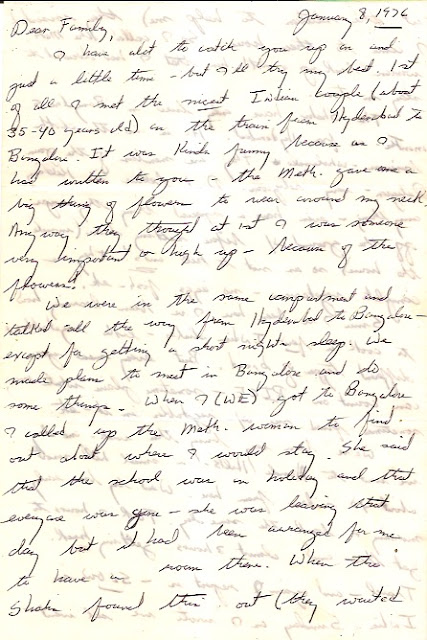 January 8, 1976
Dear Family,
I have alot to catch you up on and
just a little time - but I'll try my best. 1st
of all I met the nicest Indian couple (about
35-40 years old) on the train from Hyderabad to
Bangalore. It was kinda funny because as I
had written to you - the Meth. gave me a
big thing of flowers to wear around my neck.
Anyway, they thought at 1st I was someone
very important or high up - because of the
flowers.
We were in the same compartment and
talked all the way from Hyderabad to Bangalore -
except for getting a short nights sleep. We
made plans to meet in Bangalore and do
some things. When I (WE) got to Bangalore
I called up the Meth. woman to find
out about where I would stay. She said
that the school was on holiday and that
everyone was gone - she was leaving that
day but it had been arranged for me
to have a room there. When the
found this out (they wanted